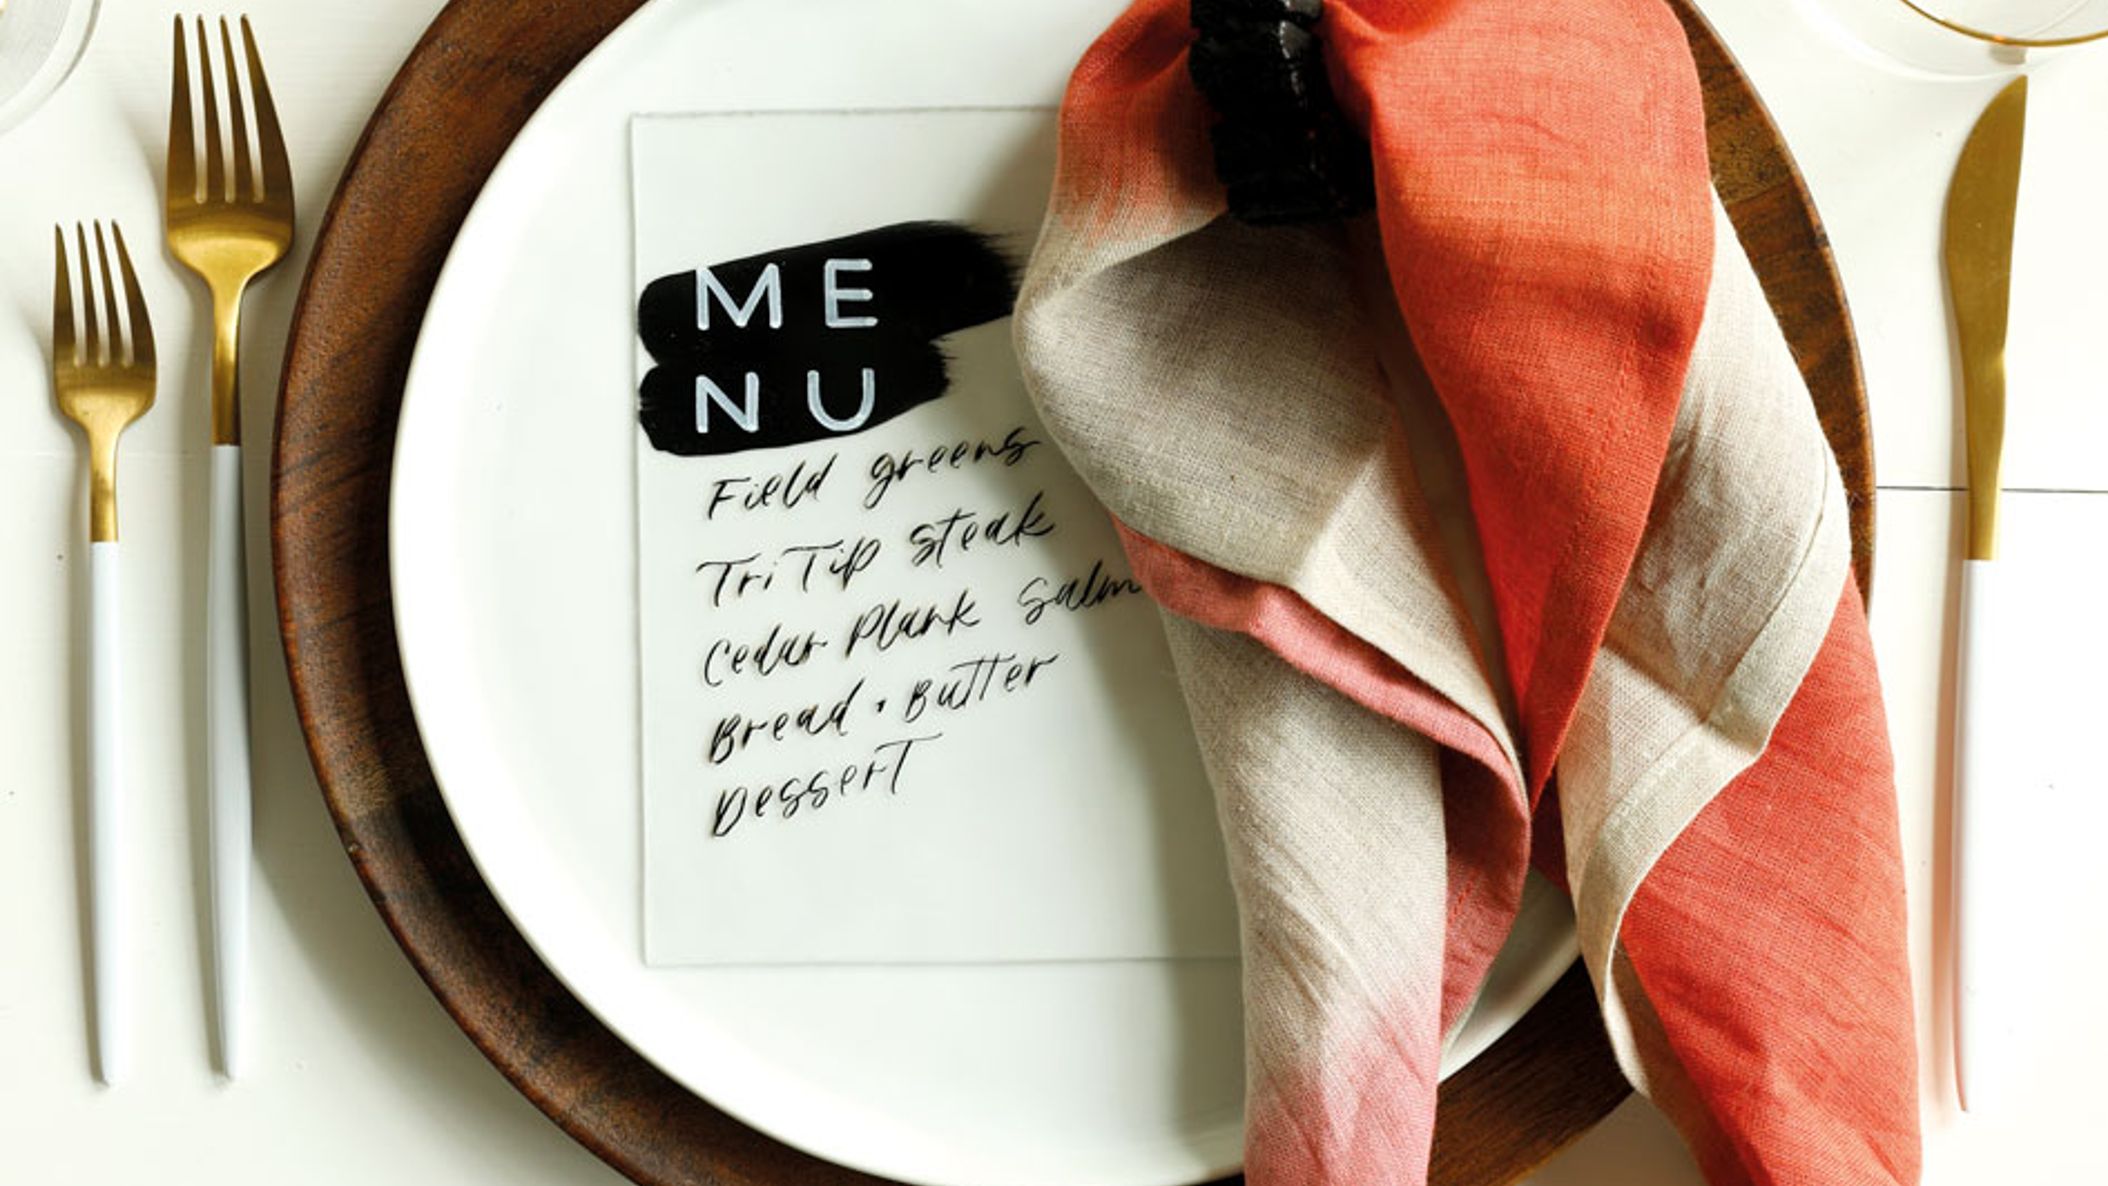 ME
NU
Field greens
Tri Tip Steak
Cedar Plank Salm
Bread + Butter
Dessert